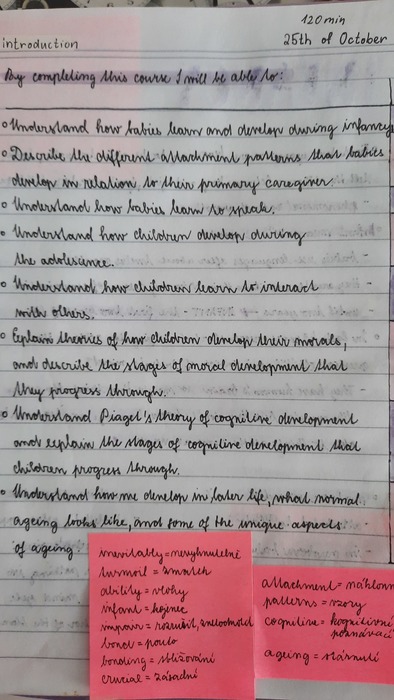 120 min
introduction
25th of October
By completing this course I will be able to:
Understand how babies learn and develop during infancy
Describe the different attachment patterns that babies
develop in relation to their primary caregiver.
Understand how babies learn to speak.
Understand how children develop during
the adolescence.
Understand how children learn to interact
with others.
Explain theories of how children develop their morals,
and describe the stages of moral development that
they progress through.
Understand Piaget's theory of cognitive development
and explain the stages of cognitive development that
children progress through.
Understand how we develop in later life, what normal
ageing looks like, and some of the unique aspects
of ageing.
inevitably = nevyhnutelně
turmoil = zmatek
ability = vlohy
infant = kojenec
impair = rozrušit, znehodnotit
bond = pouto
bonding = sbližování
crucial = zásadní
attachment = náklonn
patterns = vzory
cognitive = kognitivní
poznávací
ageing = stárnutí